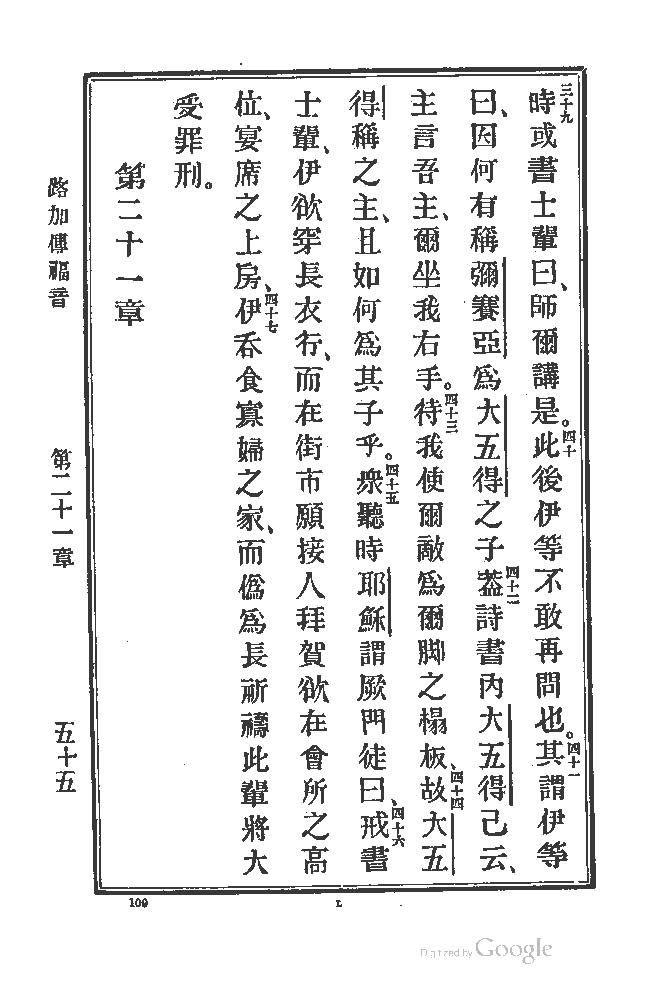 三十九時或書士輩曰、師爾講是。四十此後伊等不敢再問也。四十一其謂伊等
曰、因何有稱彌賽亞爲大五得之子。四十二葢詩書內大五得己云、
主言吾主、爾坐我右手。四十三待我使爾敵爲爾脚之榻板、四十四故大五
得稱之主、且如何爲其子乎。四十五衆聽時耶穌謂厥門徒曰、四十六戒書
士輩、伊欲穿長衣行、而在街市願接人拜賀欲在會所之高
位、宴席之上房、四十七伊吞食寡婦之家、而僞爲長祈禱此輩將大
受罪刑。
第二十一章
路加傳福音 第二十一章 五十五
109 L
Digitized by Google